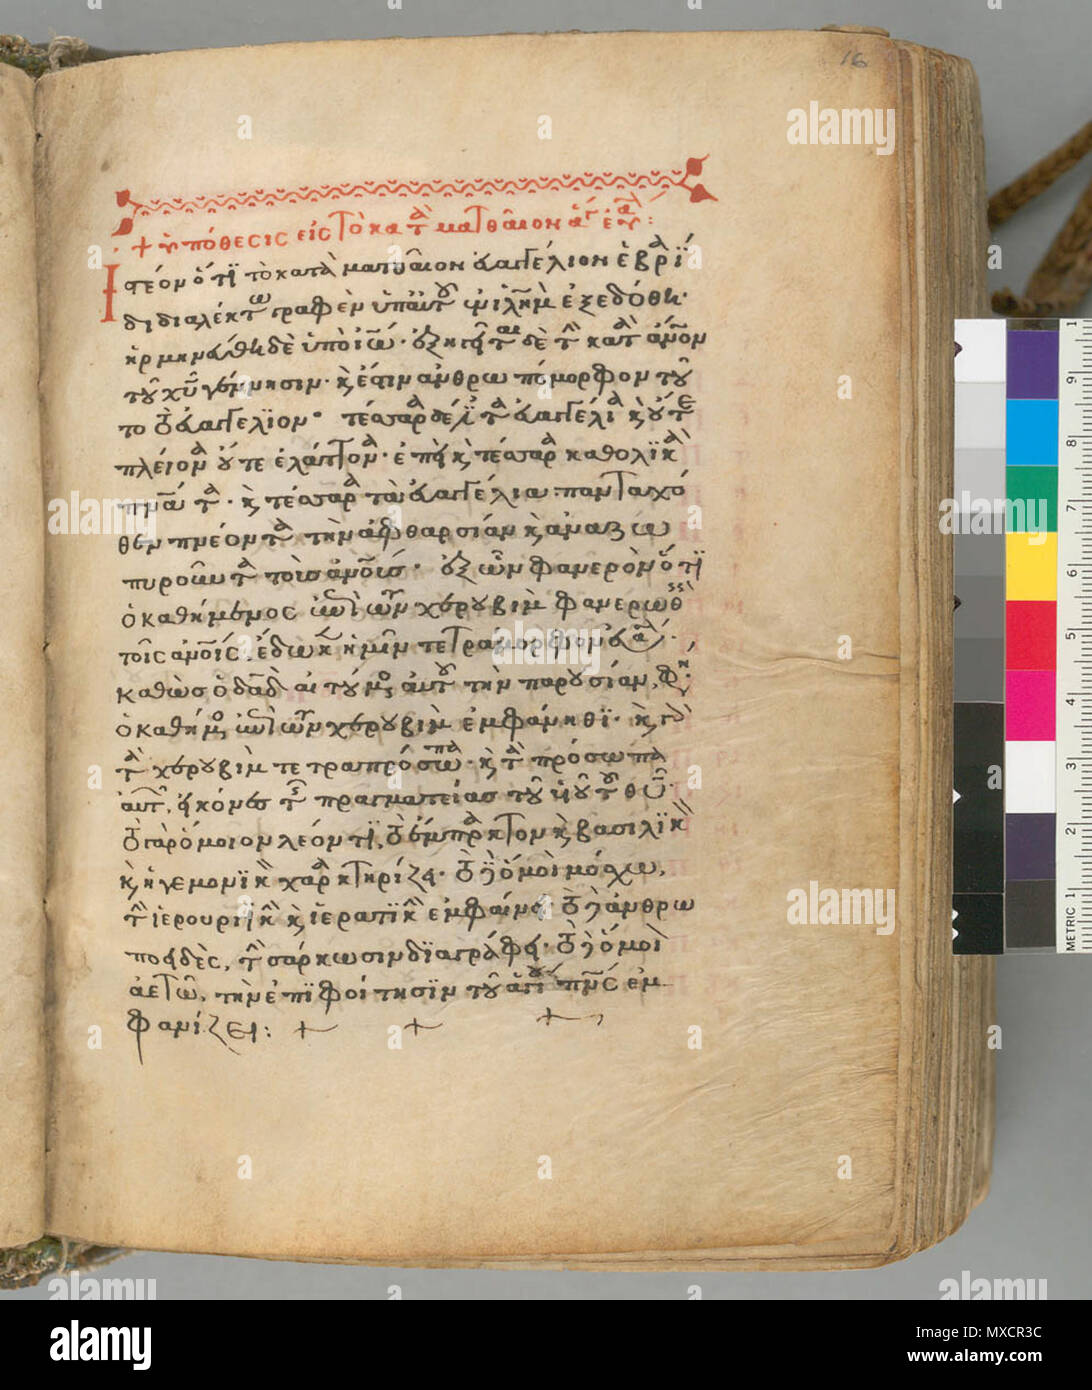 16
+ ὑπόθεσις εἰς τὸ κατὰ ματθαῖον ἅγ εὐα:
Ἰστέον ὅτι τὸ κατὰ ματθαῖον εὐαγγέλιον ἑβραΐ
δι διαλέκτω γραφὲν ὑπ αὐτοῦ
ἐξεδόθη·
ἑρμηνεύθη δὲ ὑπὸ ἰω· ἐξηγεῖται δὲ τὴν κατὰ ἄνον
τοῦ χυ γέννησιν· καὶ ἔστιν ἀνθρωπόμορφον τοῦ
το τὸ εὐαγγέλιον· τέσσαρα δέ εἰσι τὰ εὐαγγέλια καὶ οὔτε
πλείονα οὔτε ἐλάττονα· ἐπεὶ καὶ τέσσαρα καθολικὰ
πνα τα· καὶ τέσσαρα τὰ εὐαγγέλια πανταχό
θεν πνέοντα τὴν ἀφθαρσίαν καὶ ἀναζω
πυροῦντα τοὺς ἀνους· ἐξ ὧν φανερὸν ὅτι
ὁ καθήμενος ἐπὶ τῶν χερουβὶμ φανερωθεὶς
τοῖς ἀνοις, ἔδωκεν ἡμῖν τετράμορφον εὐα·
καθὼς ὁ δαδ αἰτούμενος αὐτοῦ τὴν παρουσίαν, φη·
ὁ καθήμενος ἐπὶ τῶν χερουβὶμ ἐμφάνηθι· καὶ γὰρ
τὰ χερουβὶμ τετραπρόσωπα· καὶ τὰ πρόσωπα
αὐτ, εἰκόνες τῆς πραγματείας τοῦ υἱοῦ τοῦ θυ·
τὸ γὰρ ὅμοιον λέοντι, τὸ ἔμπρακτον καὶ βασιλικὸν
καὶ ἡγεμονικὸν χαρακτηρίζει· τὸ δὲ ὅμοιον μόσχω,
τὴν ἱερουργικὴν καὶ ἱερατικὴν ἐμφαίνει· τὸ δὲ ἀνθρω
ποειδὲς, τὴν σάρκωσιν διαγράφει· τὸ δὲ ὅμοιον
ἀετῶ, τὴν ἐπιφοίτησιν τοῦ ἁγίου πνς ἐμ
φανίζει: + + +
METRIC 1 2 3 4 5 6 7 8 9 1
alamy
a
alamy
Image ID: MXCR3C
www.alamy.com